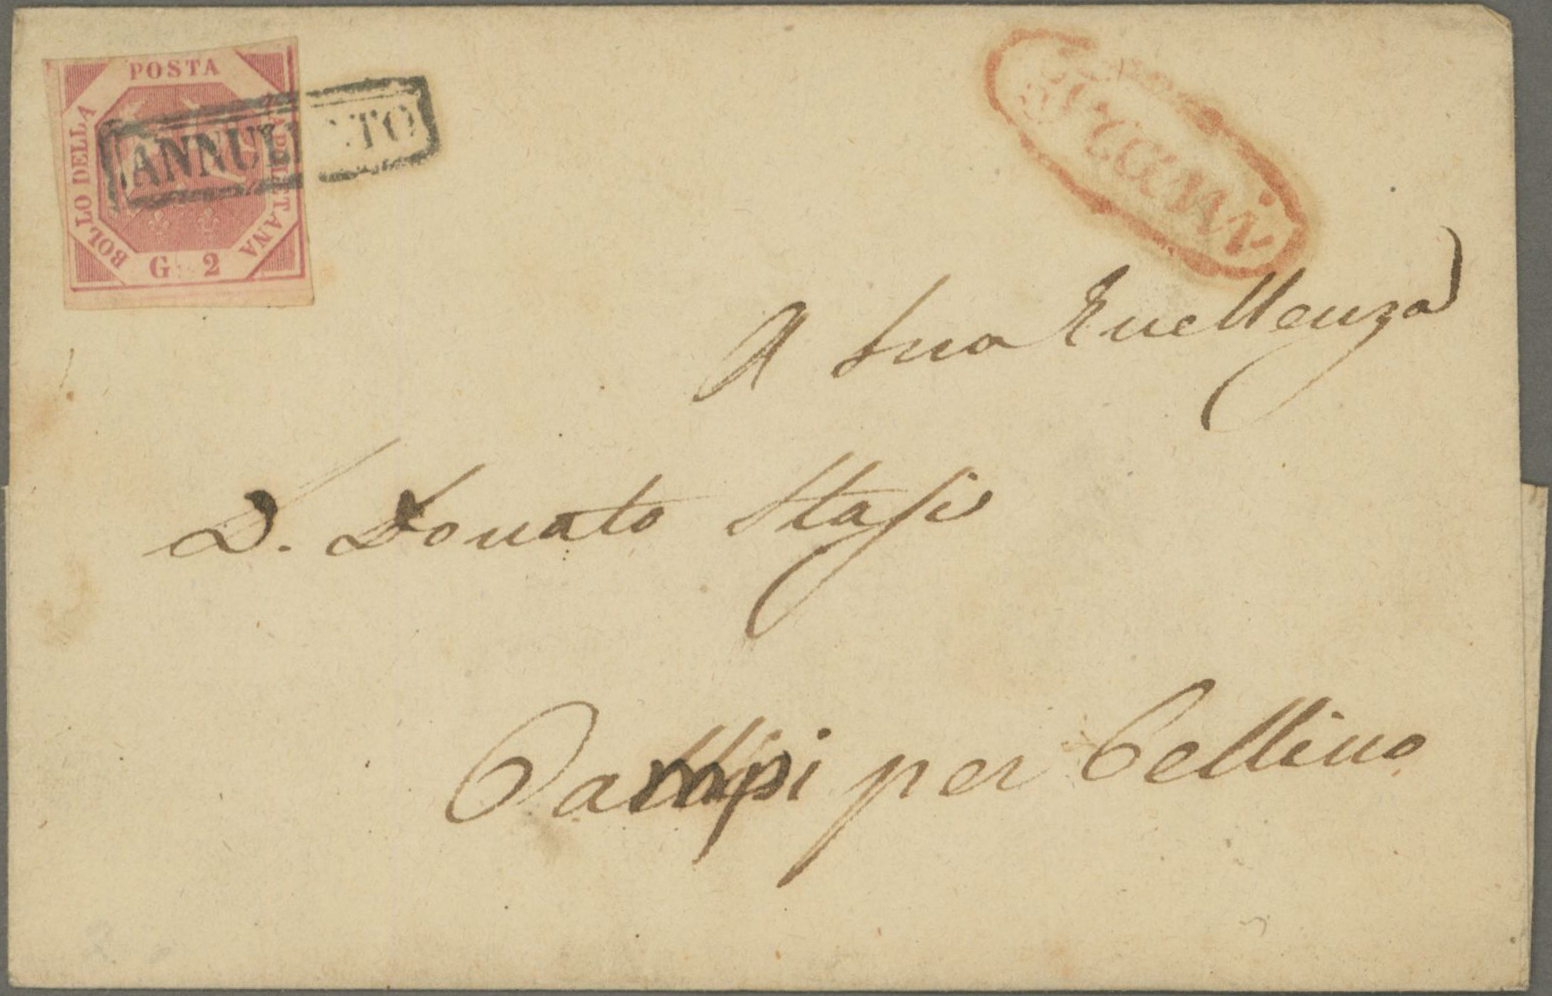 POSTA
BOLLO DELLA
NAPOLETANA
G. 2
ANNULLATO
A Sua Eccellenza
D. Donato Stasi
Campi per Cellino